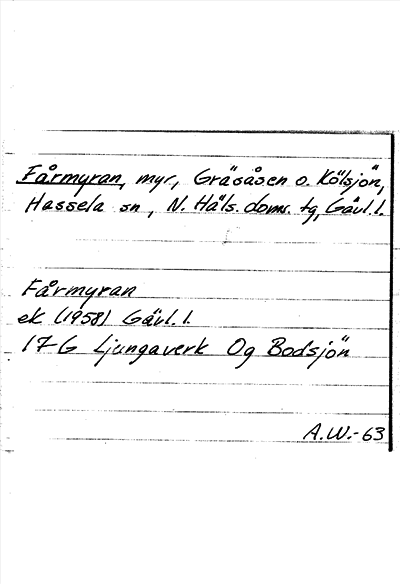 Fårmyran, myr, Gräsåsen o. Kölsjön,
Hassela sn, N. Häls. doms. tg, Gävl. l.
Fårmyran
ek (1958) Gävl. l.
17-G Ljungaverk Og Bodsjön
A.W.-63